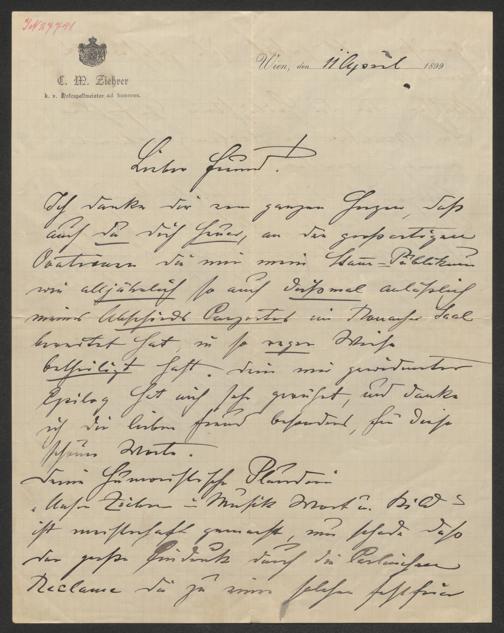 C. M. Ziehrer
k. u. k. Hofkapellmeister ad honorem.
Wien, den 11 April 1899
Lieber Freund!
Ich danke dir von ganzen Herzen, daß
auch du dich heuer, an den großartigen
Ovationen die mir mein Stam-Publikum
wie alljährlich so auch diesmal anläßlich
meines Abschieds Conzertes im Ronacher Saal
bereitet hat, in so reger Weise
betheiligt hast. Dein mir gewidmeter
Epilog hat mich sehr gerührt, und danke
ich dir lieber Freund besonders, für diese
schönen Worte.
Deine humoristische Plauderei
Ziehrer in Musik Wort u. Bild
ist meisterhaft gemacht, nur schade daß
der große Eindruck durch die
Reclame die zu einer solchen